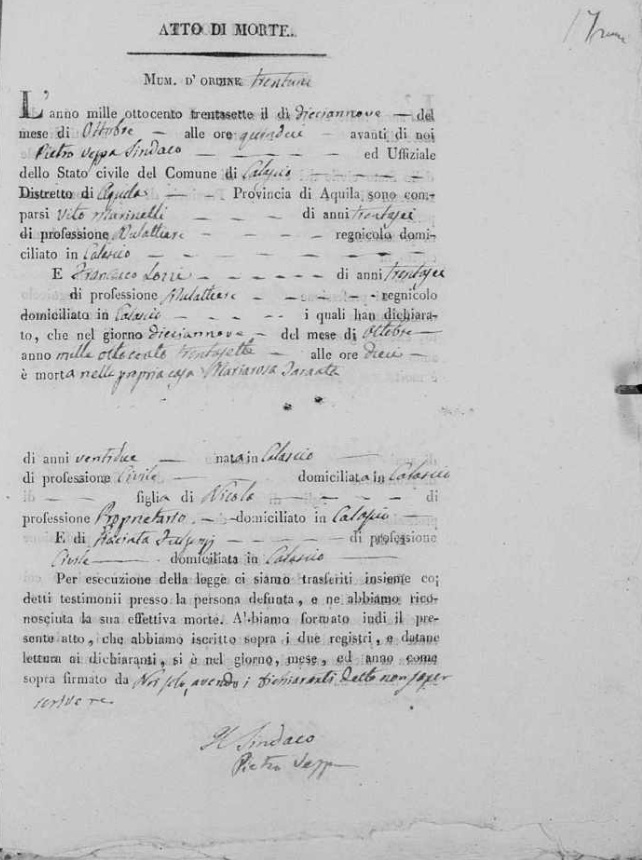 ATTO DI MORTE.
NUM. D' ORDINE trentuno
L' anno mille ottocento trentasette il dì diecianove — del
mese di Ottobre — alle ore quindici — avanti di noi
Pietro Sindaco — — — — — ed Uffiziale
dello Stato civile del Comune di Calascio — — — —
Distretto di Aquila — — Provincia di Aquila sono com-
parsi Vito Marinelli — — — di anni trentasei
di professione Mulattiere — — — — regnicolo domi-
ciliato in Calascio — — — — —
E Francesco — — — — — di anni trentasei
di professione Mulattiere — — — — regnicolo
domiciliato in Calascio — — — — i quali han dichiara-
to, che nel giorno diecianove — del mese di Ottobre —
anno mille ottocento trentasette — alle ore dieci —
è morta nella propria casa Mariarosa
di anni ventidue — nata in Calascio —
di professione Civile — domiciliata in Calascio
di — — figlia di Nicola — — — — di
professione Proprietario — domiciliato in Calascio —
E di — — — — di professione
Civile — domiciliata in Calascio —
Per esecuzione della legge ci siamo trasferiti insieme co'
detti testimonii presso la persona defunta, e ne abbiamo rico-
nosciuta la sua effettiva morte. Abbiamo formato indi il pre-
sente atto, che abbiamo iscritto sopra i due registri, e datane
lettura ai dichiaranti, si è nel giorno, mese, ed anno come
sopra firmato da Noi solo, avendo i dichiaranti detto non saper
scrivere
Il Sindaco
Pietro